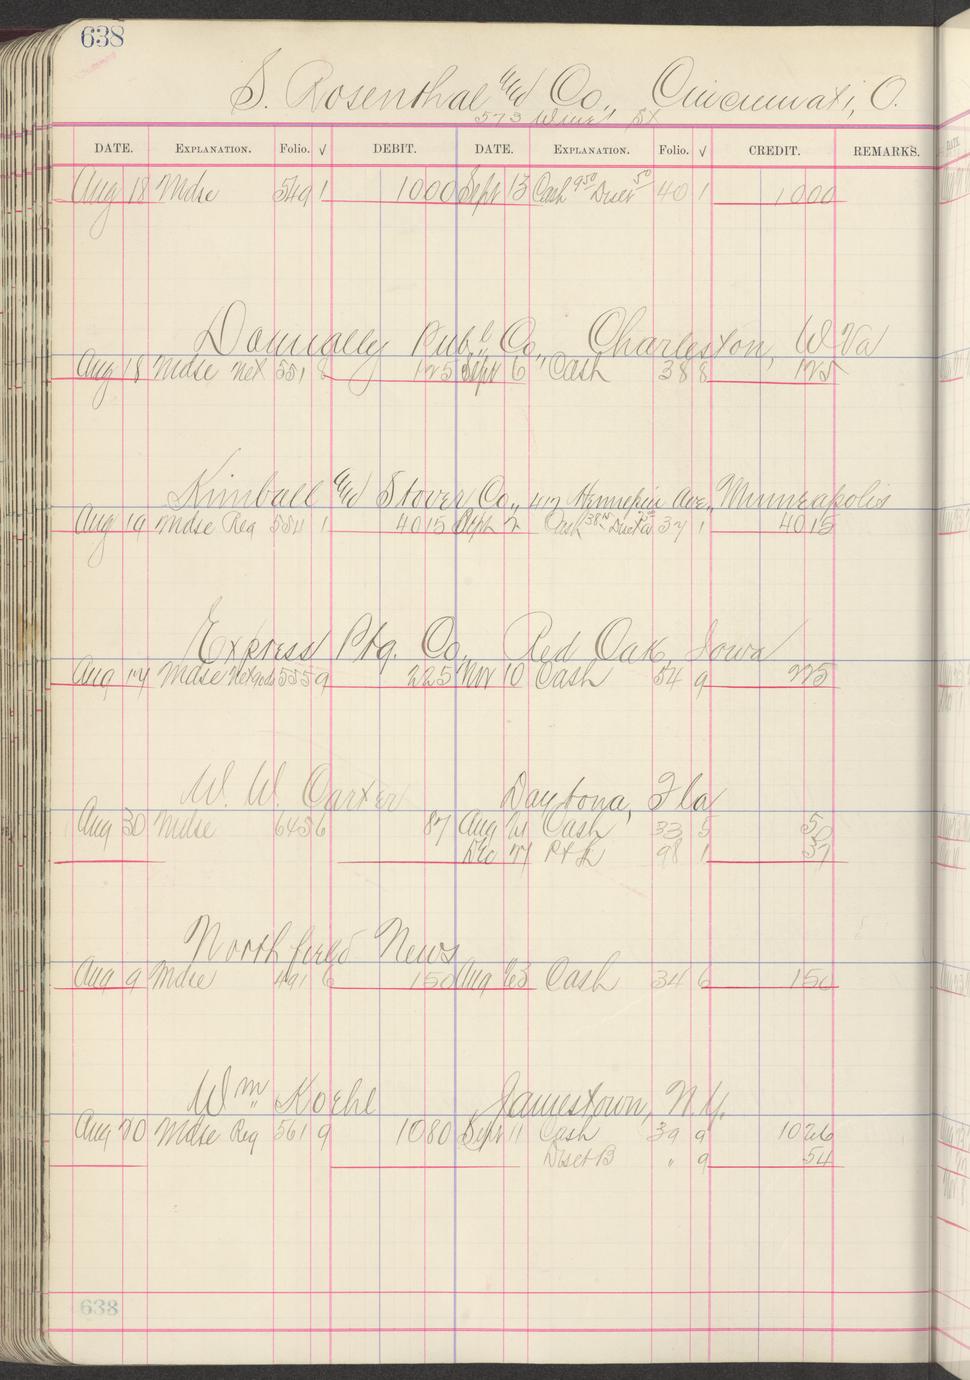 638
S. Rosenthal and Co., Cincinnati, O.
573 St
DATE. EXPLANATION. Folio. √ DEBIT. DATE. EXPLANATION. Folio. √ CREDIT. REMARKS.
Aug 18 Mdse 549 1 1000 Sept 13 Cash 950 Disct 50 40 1 1000
Donnally Publ Co., Charleston, W Va
Aug 18 Mdse Net 551 8 125 Sept 6 Cash 38 8 125
Kimball and Stover Co., 417 Hennepin Ave., Minneapolis
Aug 19 Mdse Reg 554 1 4015 Sept 2 Cash Disct 37 1 4015
Express Ptg. Co. Red Oak, Iowa
Aug 24 Mdse 555 9 225 Nov 10 Cash 54 9 225
W. W. Carter Daytona, Fla
Aug 30 Mdse 645 6 87 Aug 21 Cash 33 5 50
Dec 27 P & L 98 1 37
Northfield News
Aug 9 Mdse 491 6 150 Aug 23 Cash 34 6 150
Wm Koehl Jamestown, N.Y.
Aug 20 Mdse Reg 561 9 1080 Sept 11 Cash 39 9 1026
Disct B " 9 54
638